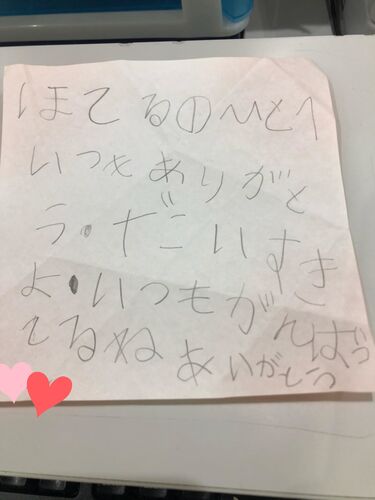 ほてるのひとへ
いつもありがと
う・だいすき
よ・いつもがんばっ
てるね ありがとう